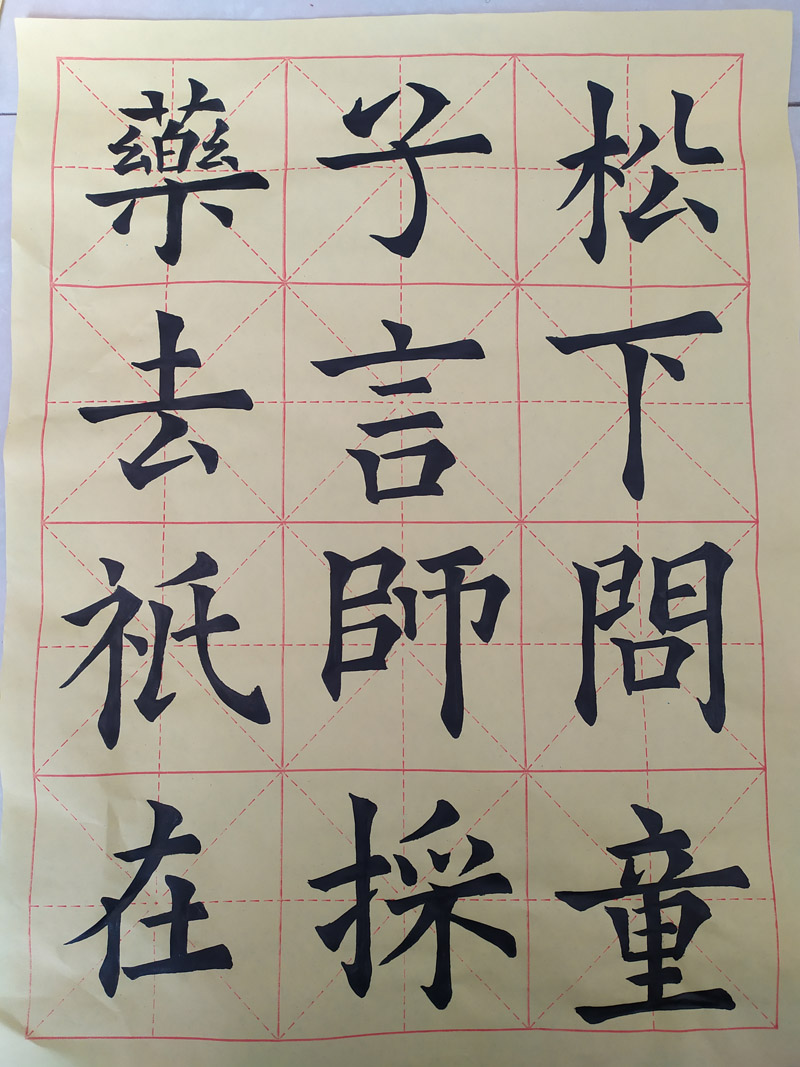 松下問童
子言師採
藥去祇在